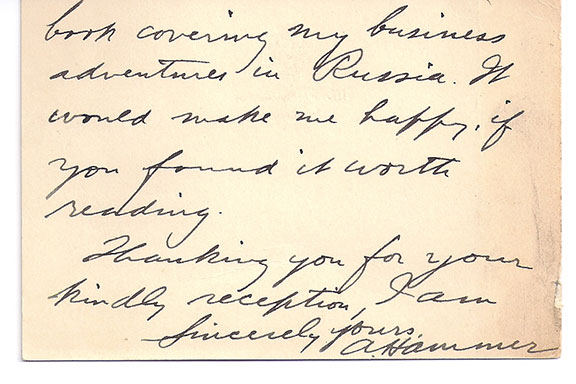 book covering my business
adventures in Russia. It
would make me happy, if
you found it worth
reading.
Thanking you for your
kindly reception, I am
Sincerely yours,
A. Hammer